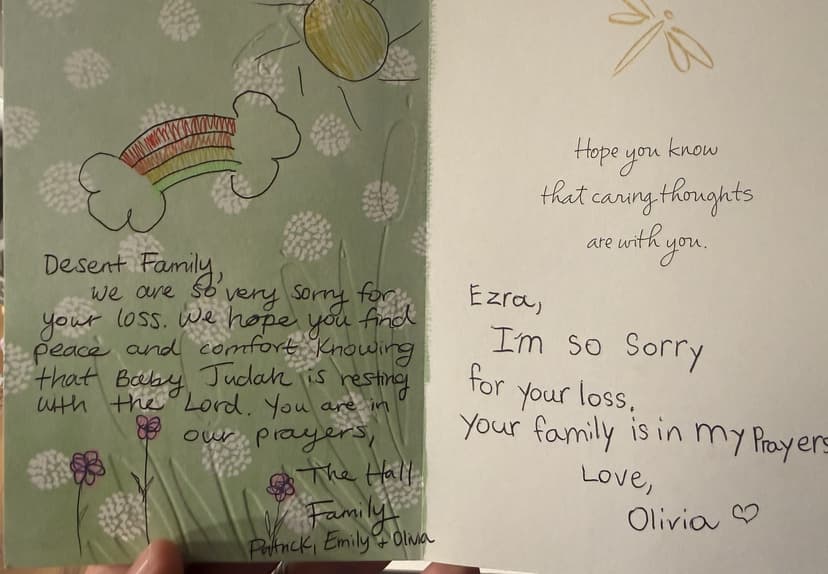 Desent Family,
We are so very sorry for
your loss. We hope you find
peace and comfort knowing
that Baby Judah is resting
with the Lord. You are in
our prayers,
The Hall
Family
Patrick, Emily & Olivia
Hope you know
that caring thoughts
are with you.
Ezra,
I'm so sorry
for your loss.
Your family is in my Prayers
Love,
Olivia ♡